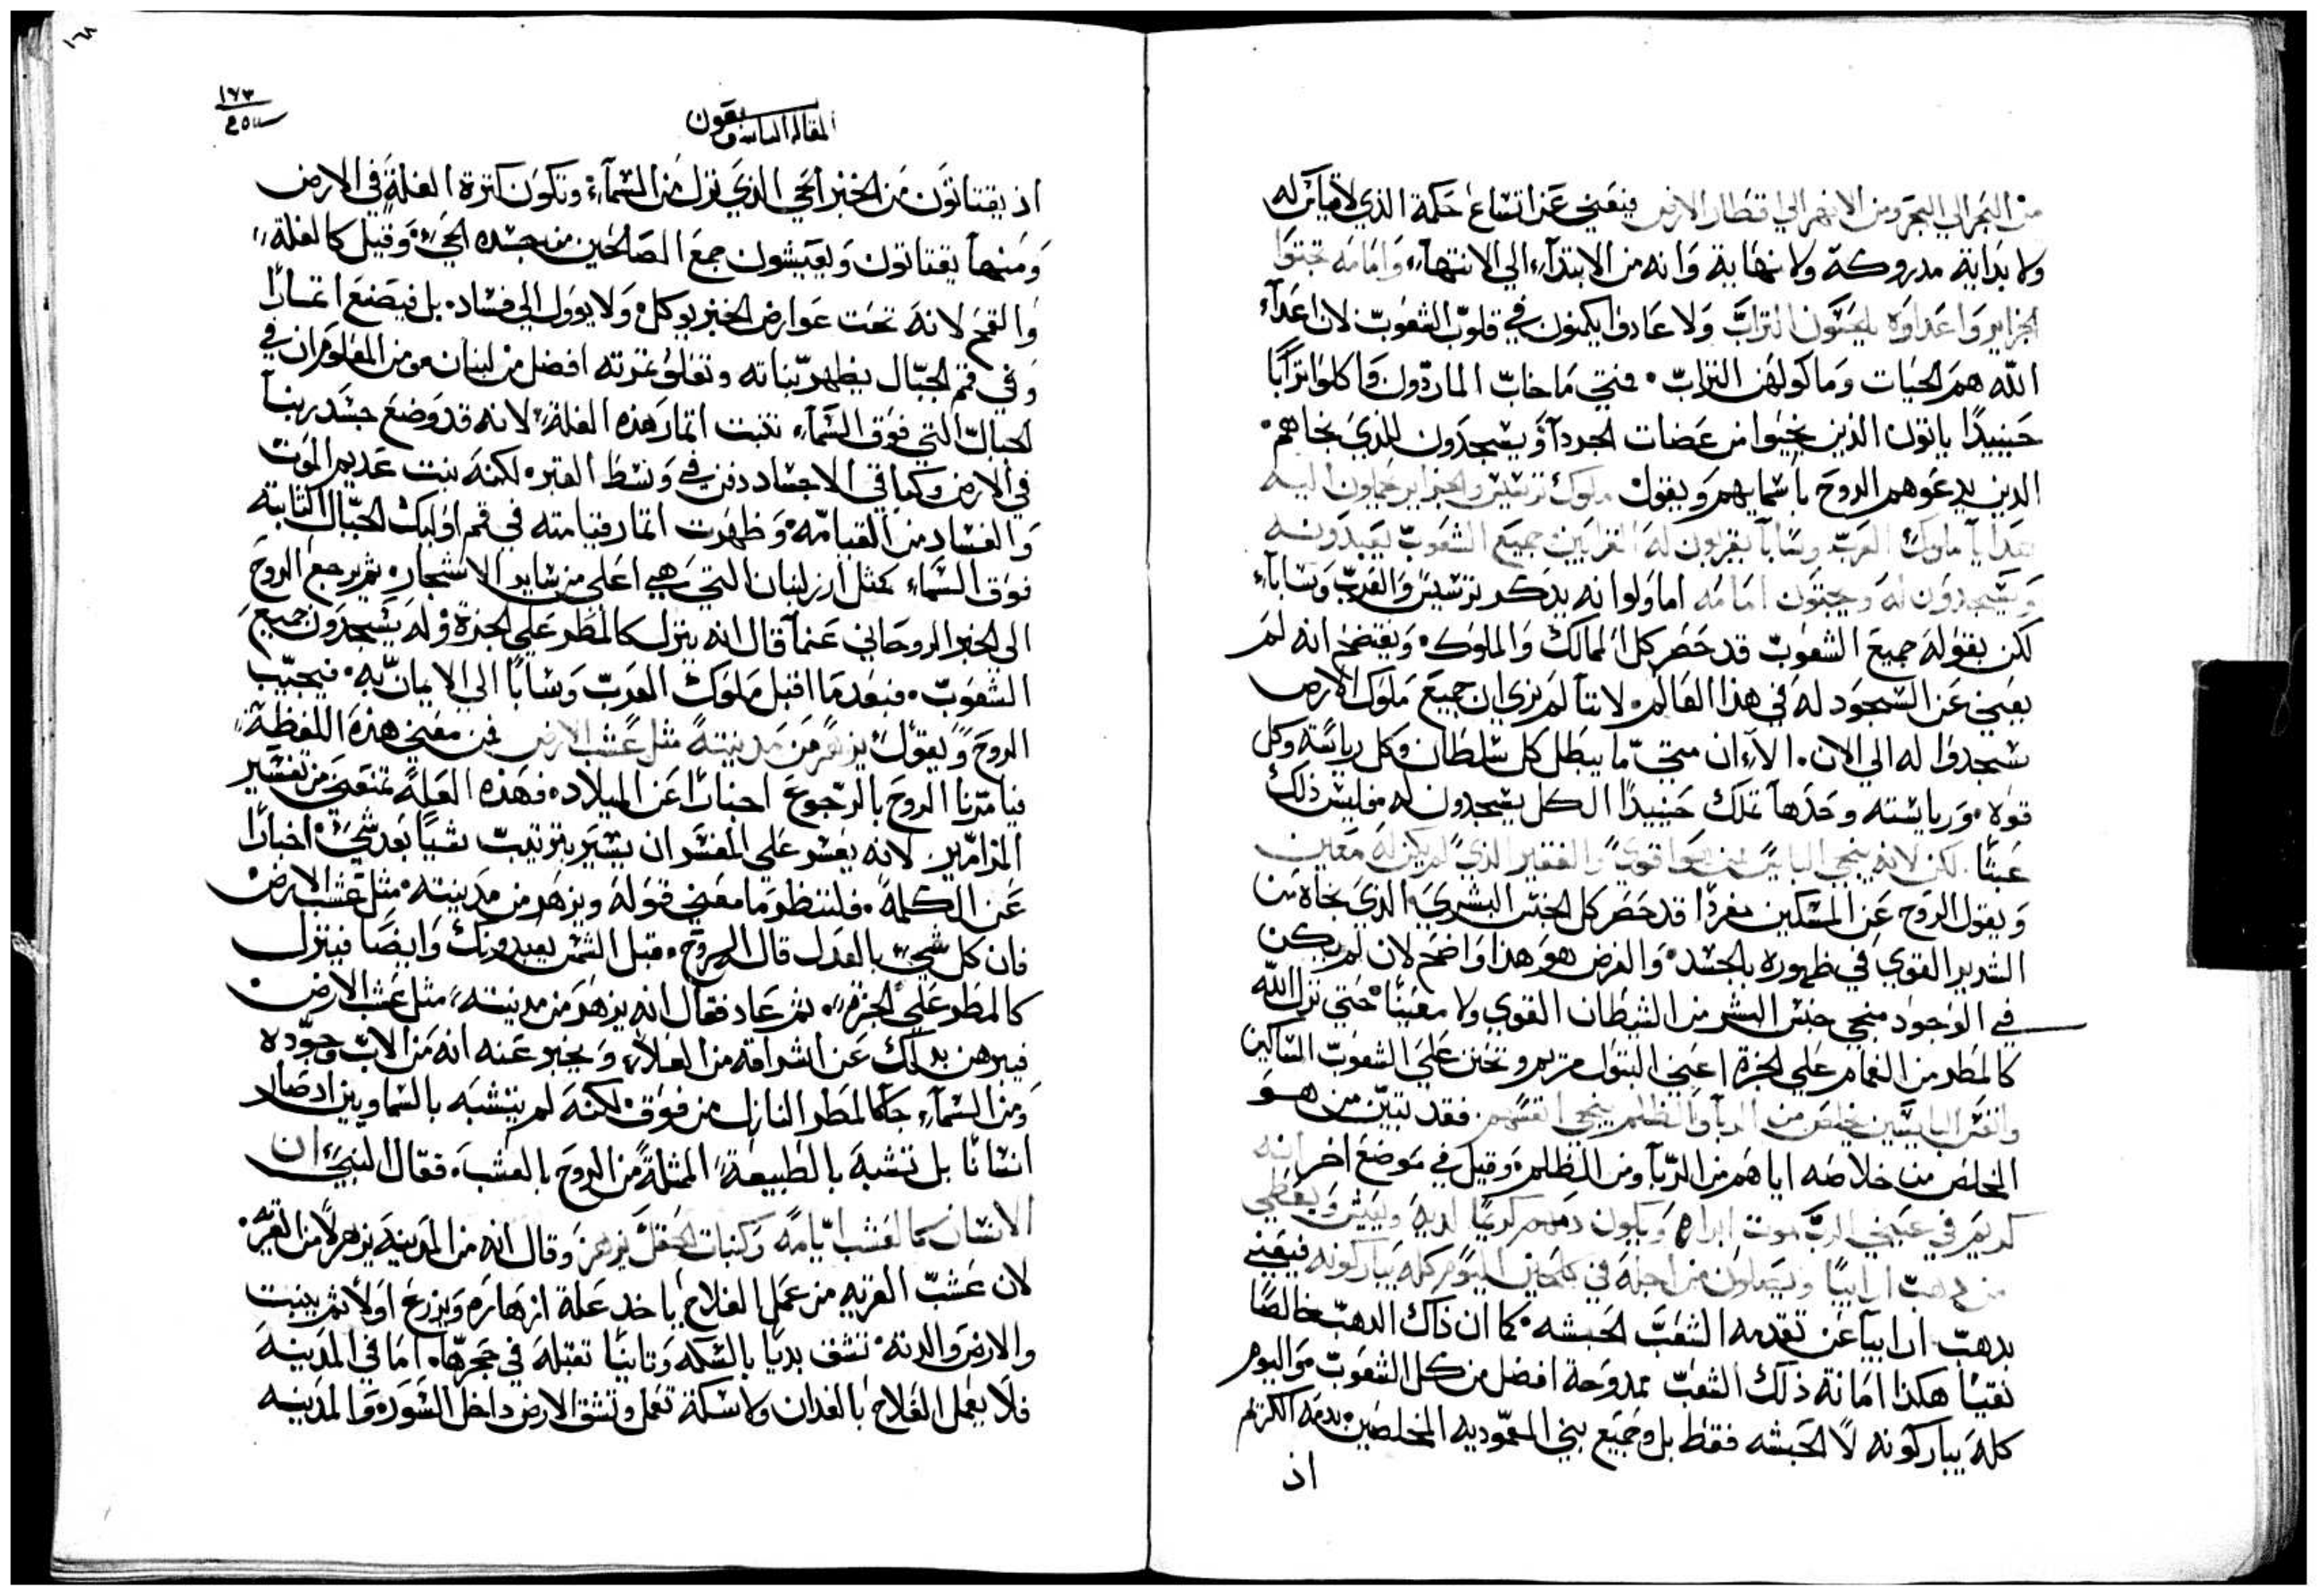 من البحر الي البحر ومن الانهر الي اقطار الارض فيَعني عَن اتسَاع حكمة الذي لا قياس له
ولا بداية مدروكة ولا نهاية وَانه من الابتدآء الي الانتهآء، وَامَامه تجثوا
الجزاير وَاعداوه يلحَسَون الترابَ وَلا عَادوا يكمنون في قلوبّ الشعوبّ لان اعَدآء
الله هم الحيات وَمَا كولهُم الترابّ. فمتي مَا خابّ الماردّون وَاكلوا ترَابًا
حَينيدًا ياتون الذين نجَيوا من عَضات الجردآ وَيسَجدَون للذيَ نجاهم.
الدين يدعَوهم الروحَ باسَمايهم وَيقول ملوك ترسيس والجزاير يحملون اليه
هَدايآ ملوك العَربّ وسَابآ يقربون لهَ القرابَين جميَع الشعوبّ يعبدَونه
وَيسَجدوَن لهَ وَيجثون امَامَه اما وَلو انه يدكر ترسَيسَ وَالعَربّ وَسَابآء
لكن بقوَلهَ جميعَ الشعوبّ قد حَصَر كل الممالك وَالملوك. وَيتضحَ انه لم
يعَني عَن السَجوَد لهَ في هذا العَالم. لاننآ لم نري ان جميَع مَلوَك الارض
سَجدوا له الي الان. الآء ان متيّ ما يبطل كل سَلطان وَكل رياسَة وَكل
قوة. وَرياسَته وَحَدهآ تملك حَينيدًا الكل يسَجدون له فليسَ ذلك
عَبثًا. لكن لانه ينجي البايسَ ممن هوا قويَ والفقير الذيَ لم يكن له معَين
وَيقول الروَح عَن المسَكين مفردًا قد حَصَر كل الجنسَ البشريَ الذيَ نجاه من
الشديد القوي في ظهوره بالجسَد. وَالغرض هوَ هذا وَاضح لان لم يكن
في الوَجود منجي جنسَ البشر من الشيطان القوي ولا معَينًا حَتي نزل الله
كالمطر من الغمام عَلي الجزة اعَني البتوَل مَريم وَتحنن عَلي الشعَوبّ المسَاكين
وانفسَ البايسَين يخلص من الربآ وَالظلم ينجي انفسَهم. فقد تبيّن من هوَ
المخلصَ من خلاصَه اياهم من الرّبآ وَمن الظلم وَقيل في مَوضعَ اخر انه
كريم في عَيني الربّ موت ابراره وَيكون دمهم كريمًا لديه وَيعَيش وَيعَطي
من دهبّ ارابيآ وَيصَلون من اجله في كل حَين اليوَم كله يباركونه فيَعني
بدهبّ ارابيآ عَن تقدمه الشعَبّ الحَبشه. كما ان ذاك الدهبّ خالصًا
نقيًا هكذا امَانة ذلك الشعَبّ ممدوَحة افضل من كل الشعَوبّ من اليوَم
كلهَ يباركوَنه لا الحَبشه فقط بل وَجميَع بني المعموديه المخلصَين بدمَه الكريم
اذ
١٦٨
١٧٣
يقتاتون
اذ يقتاتوَن مَن الخبز الحي الذيَ نزل من السَمآء، وَتكوَن كثرة الغلةَ في الارض
وَمنهآ يقتاتون وَيعَيشون جمعَ الصَالحَين من جسَده الحيَ، وَقيل كالغلة
وَالقمحَ لانهَ تحَت عَوارض الخبز يوَكل وَلا يووَل الي فسَاد. بل فيصَنعَ اثمارًا
وَفي قمم الجبال يظهر بنباته وَتعَلوا ثمرته افضل من لبنان. وَمن المعَلوَم ان في
الجبالّ التي فوَق السَمآء تنبت اثمار هذه الغلة لانه قد وَضعَ جسَد ربنآ
في الارض وكباقي الاجسَاد دفن في وَسَط القبر لكنهَ نبت عَديم الموَت
وَالفسَاد من القيامّه. وَظهرت اثمار قيامته في قمم اوَليك الجبَال الثابته
فوَق السَمآء كمثل ارز لبنان التي هي اعَلي من سَاير الاشجار. ثم يرجعَ الروَحَ
الي الخبز الروحَاني عَنمآ قال انه ينزل كالمطر عَلي الجزة وله يسَجدوَن جميعَ
الشعَوبّ. فبعَدمَا اقبل مَلوَك العَربّ وَسَابآ الي الايمان به. فيجيبّ
الروَحَ وَيقول يزهر من مَدينته مثل عَشب الارض فمن معَني هذه اللفظة
فيامرّنا الروحَ بالرّجوعَ اخبارًا عَن الميلاد. فهَذه العَلة تمنعَني من تفسَير
المزامير. لانه يعَسَر عَلي المفسَر ان يسَير بترتيبّ شيًا بعَد شيَ. اخبارًا
عَن الكلمة. فلننظر مَا معَني قوَلهَ وَيزهر من مَدينته. مثل عَشب الارض
فان كل شيَ بالعَدل قال الروَحَ. قبل الشمسَ يعَبدونك وَايضًا فينزل
كالمطر عَلي الجزة. ثم عَاد فقال انه يزهر من مدينته، مثل عَشب الارض
فيبرهن بدلك عَن اشراقه من العَلآء وَيخبر عَنه انه مَن الابّ وَجوّده
وَمن السَمآء جآ كالمطر النازل من فوَق. لكنهَ لم يتشبَه بالسَماويين اد صَار
انسَانًا بل تشبهَ بالطبيعَة الممثلة من الروحَ بالعَشبَ. فقال النبيَ ان
الانسَان كالعَشب ايّامهَ وَكنبات الحَقل يزهر وَقال انه من المدينهَ يزهر لا من القريه.
لان عَشبّ القريه من عَمل الفلاح ياخد عَلة ازهارهَ وَيزرعَ اوَلا ثم ينبت
والارض والدنه. تشق بديًا بالسَكه وَثانيًا تقبلهَ في حَجرها. امَا في المدَينهَ
فلا يعَمل الفلاح بالفدان ولا سَكة تعَمل وَتشق الارض داخل السَوَره وَالمدَينه